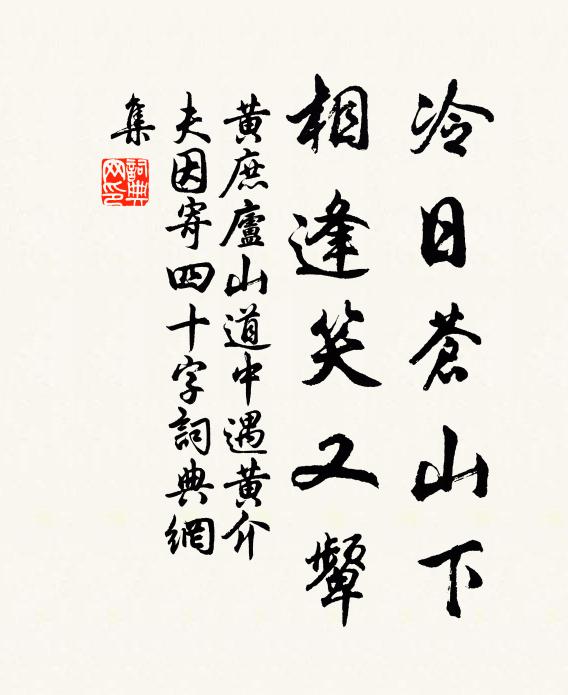 冷日蒼山下
相逢笑又顰
黄庶廬山道中遇黄介
夫因寄四十字詞典網
集
詞典
网印